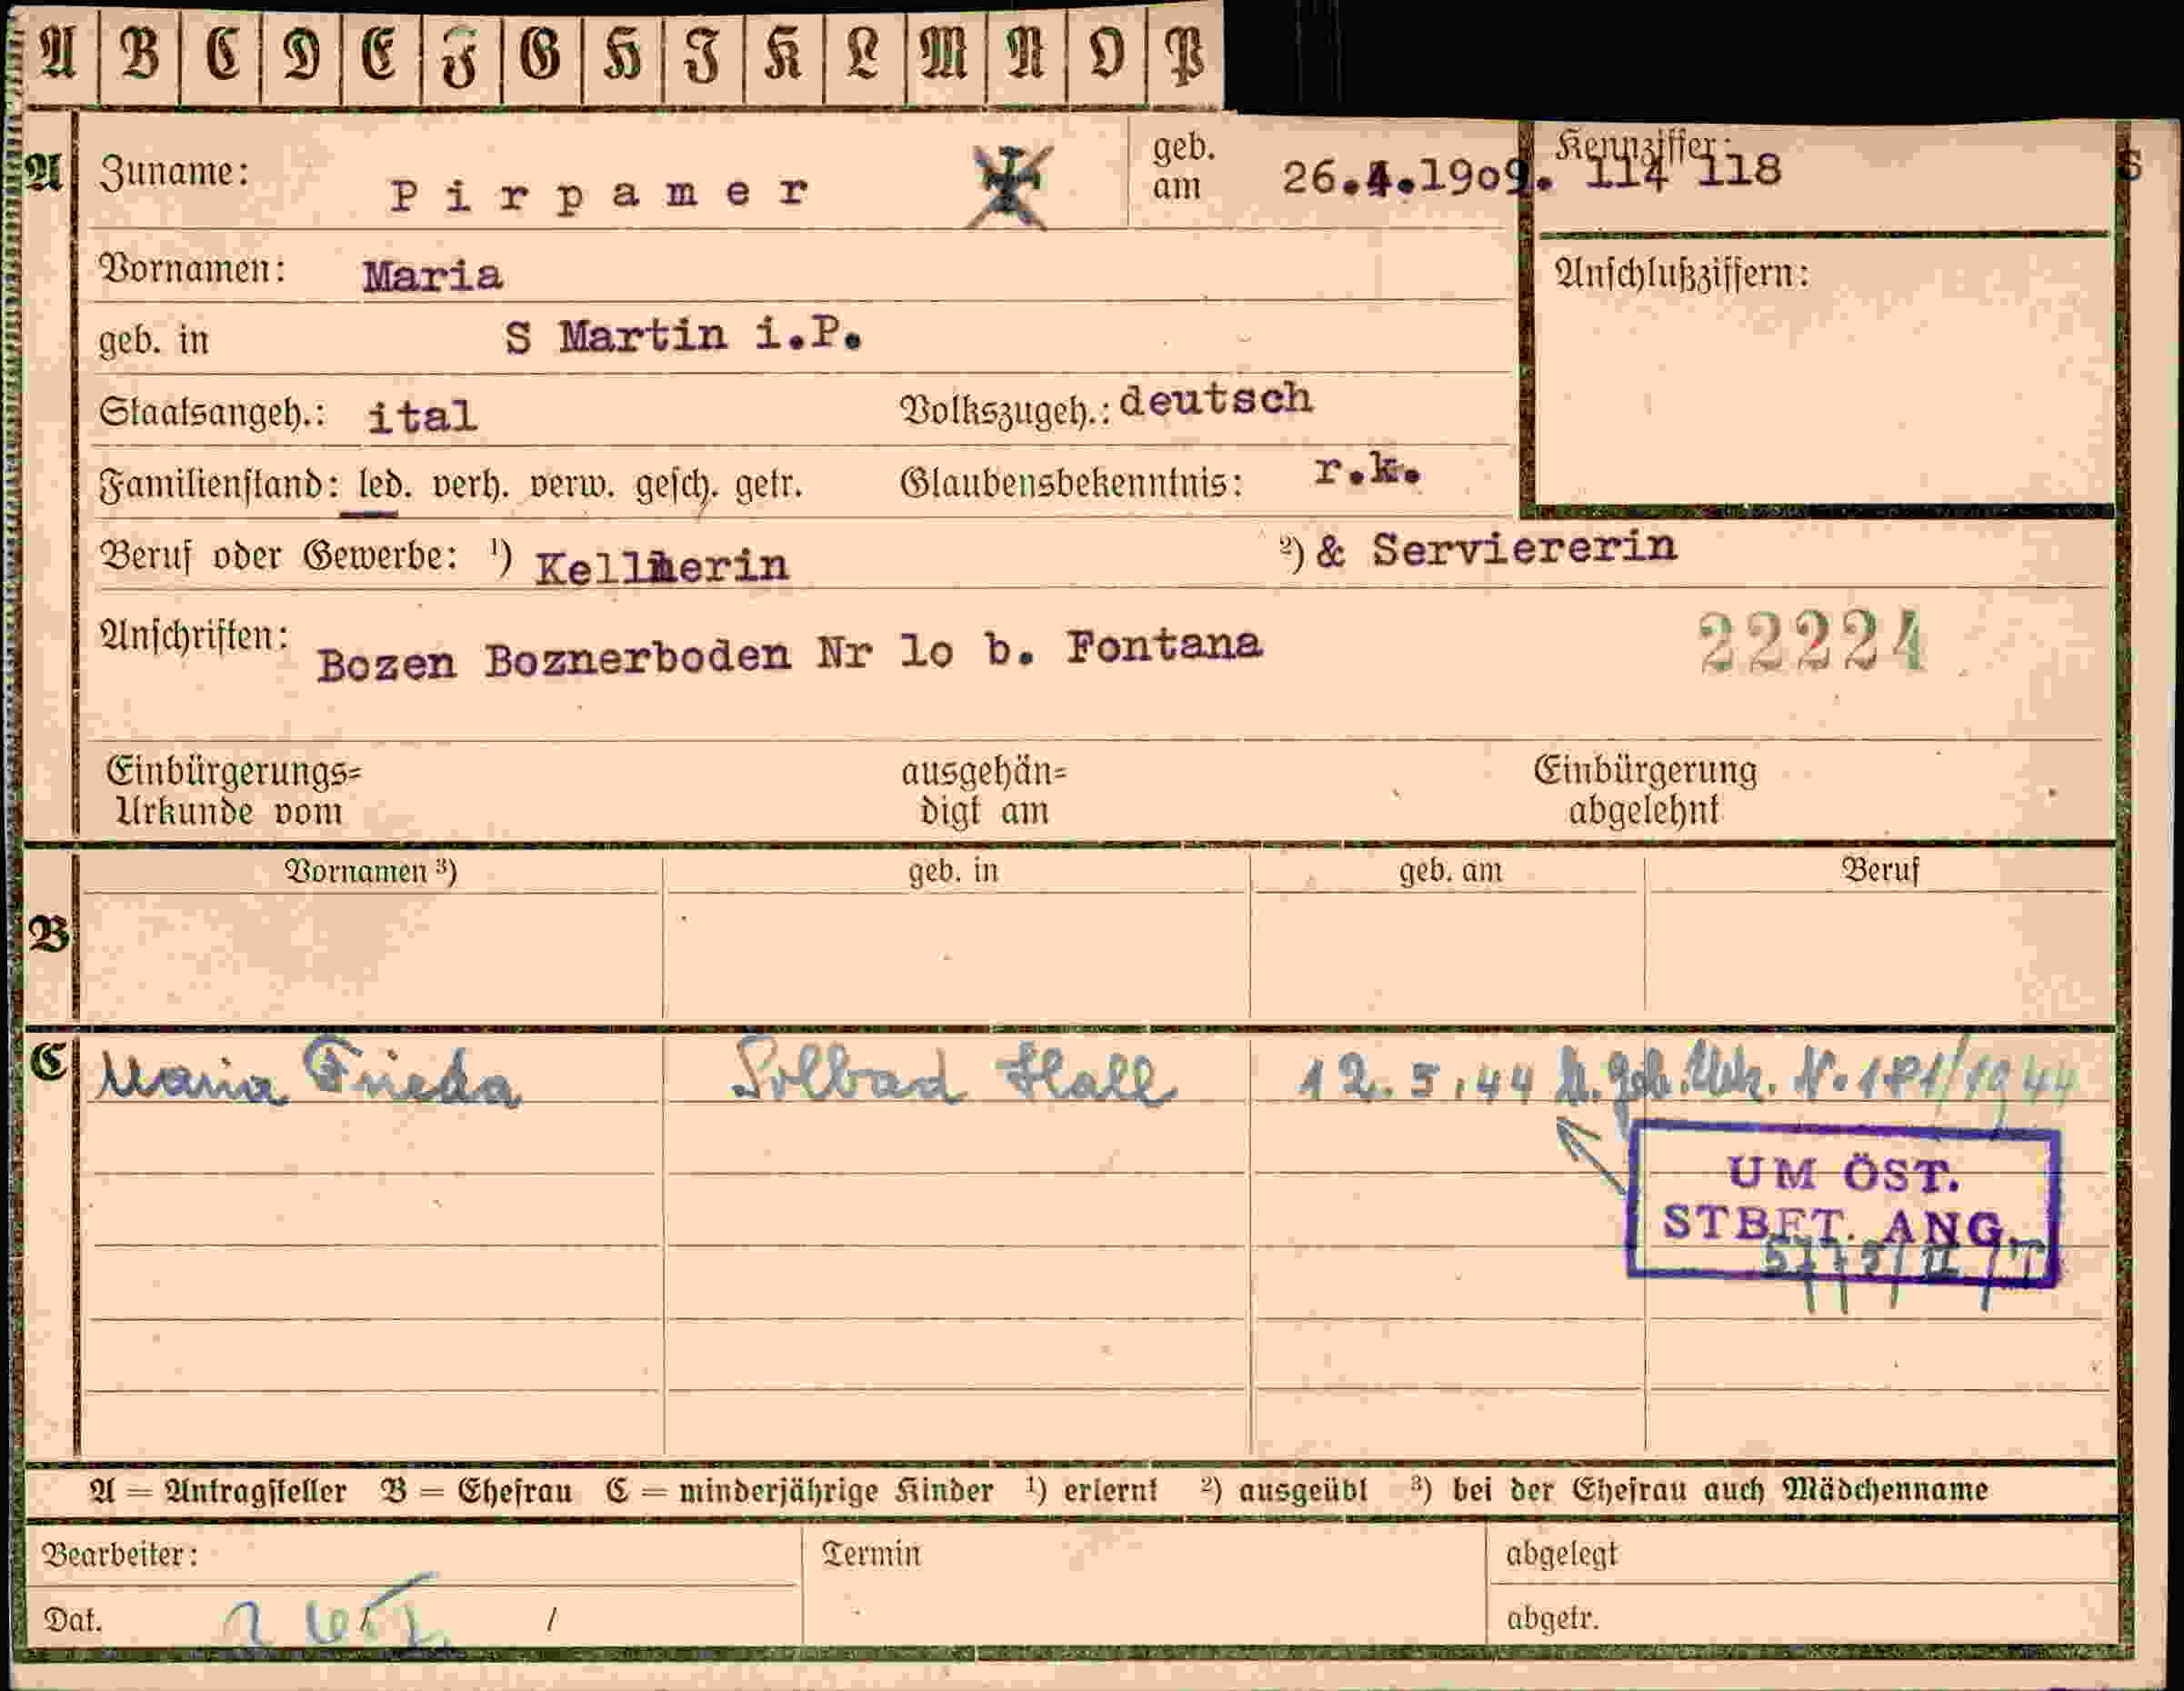 A B C D E F G H I K L M N O P
A Zuname: Pirpamer geb. am 26.4.1909. Kennziffer: 114 118 S
Vornamen: Maria
Anschlußziffern:
geb. in S Martin i.P.
Staatsangeh.: ital Volkszugeh.: deutsch
Familienstand: led. verh. verw. gesch. getr. Glaubensbekenntnis: r.k.
Beruf oder Gewerbe: ¹) Kellnerin ²) & Serviererin
Anschriften: Bozen Boznerboden Nr 1o b. Fontana 22224
Einbürgerungs= ausgehän= Einbürgerung
Urkunde vom digt am abgelehnt
Vornamen ³) geb. in geb. am Beruf
B
C Maria Frieda Solbad Hall 12.5.44 lt. geb. Urk. N. 181/1944
UM ÖST.
STBET. ANG.
A = Antragsteller B = Ehefrau C = minderjährige Kinder ¹) erlernt ²) ausgeübt ³) bei der Ehefrau auch Mädchenname
Bearbeiter: Termin abgelegt
Dat. / abgetr.